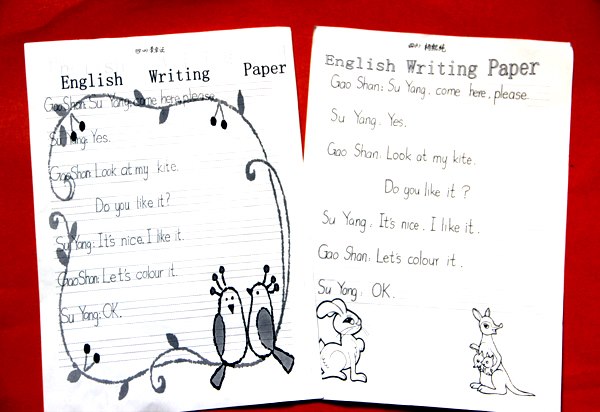 English Writing Paper
Gao Shan: Su Yang, come here, please.
Su Yang: Yes.
Gao Shan: Look at my kite.
Do you like it?
Su Yang: It's nice. I like it.
Gao Shan: Let's colour it.
Su Yang: OK.
English Writing Paper
Gao Shan: Su Yang, come here, please.
Su Yang. Yes.
Gao Shan: Look at my kite.
Do you like it ?
Su Yang. It's nice. I like it.
Gao Shan: Let's colour it.
Su Yang. OK.